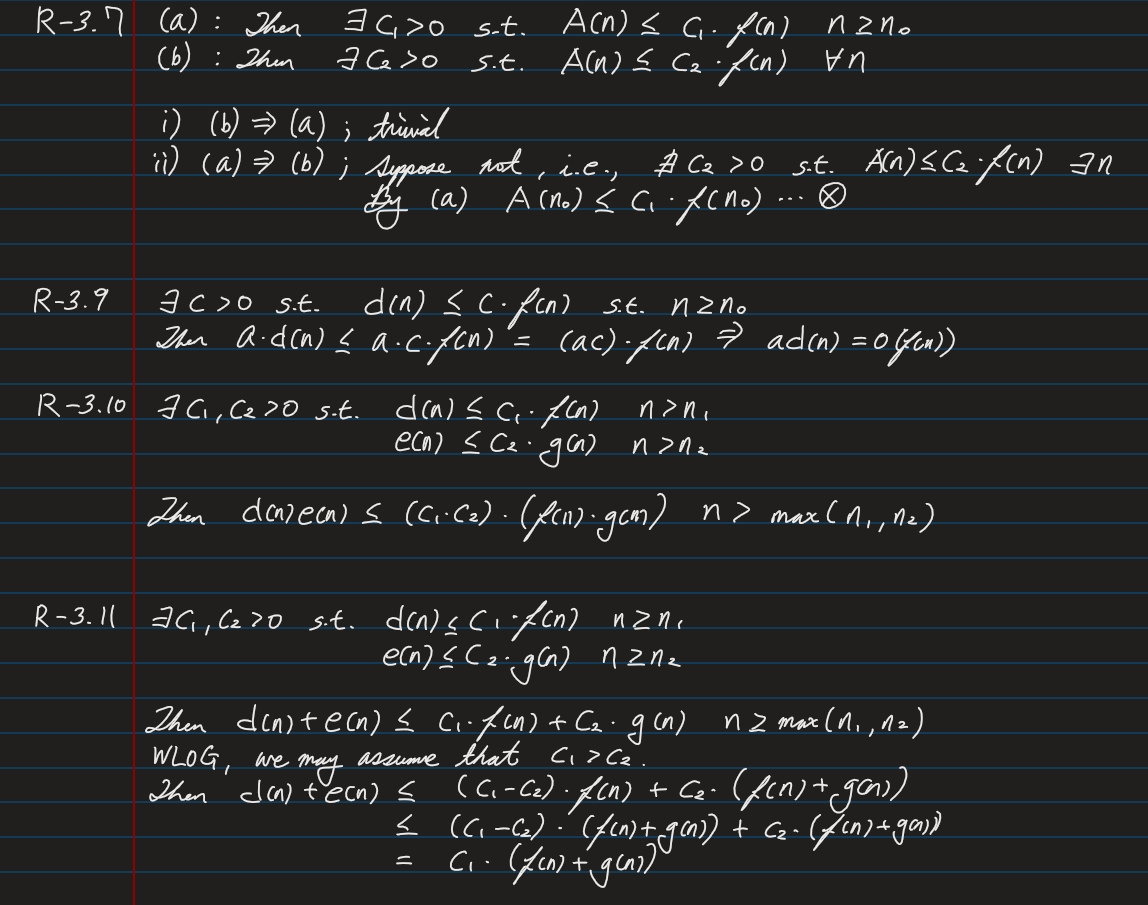 R-3.7 (a) : Then ∃ C₁>0 s.t. A(n) ≤ C₁·f(n) n≥n₀
(b) : Then ∃ C₂>0 s.t. A(n) ≤ C₂·f(n) ∀n
i) (b) ⇒ (a) ; trivial
ii) (a) ⇒ (b) ; suppose not, i.e., ∄ C₂>0 s.t. A(n) ≤ C₂·f(n) ∃n
By (a) A(n₀) ≤ C₁·f(n₀) ... ⊗
R-3.9 ∃ C>0 s.t. d(n) ≤ C·f(n) s.t. n≥n₀
Then a·d(n) ≤ a·c·f(n) = (ac)·f(n) ⇒ ad(n) = O(f(n))
R-3.10 ∃ C₁, C₂>0 s.t. d(n) ≤ C₁·f(n) n>n₁
e(n) ≤ C₂·g(n) n>n₂
Then d(n)e(n) ≤ (C₁·C₂)·(f(n)·g(n)) n > max(n₁, n₂)
R-3.11 ∃C₁, C₂>0 s.t. d(n) ≤ C₁·f(n) n≥n₁
e(n) ≤ C₂·g(n) n≥n₂
Then d(n)+e(n) ≤ C₁·f(n) + C₂·g(n) n≥max(n₁, n₂)
WLOG, we may assume that C₁>C₂.
Then d(n)+e(n) ≤ (C₁-C₂)·f(n) + C₂·(f(n)+g(n))
≤ (C₁-C₂)·(f(n)+g(n)) + C₂·(f(n)+g(n))
= C₁·(f(n)+g(n))